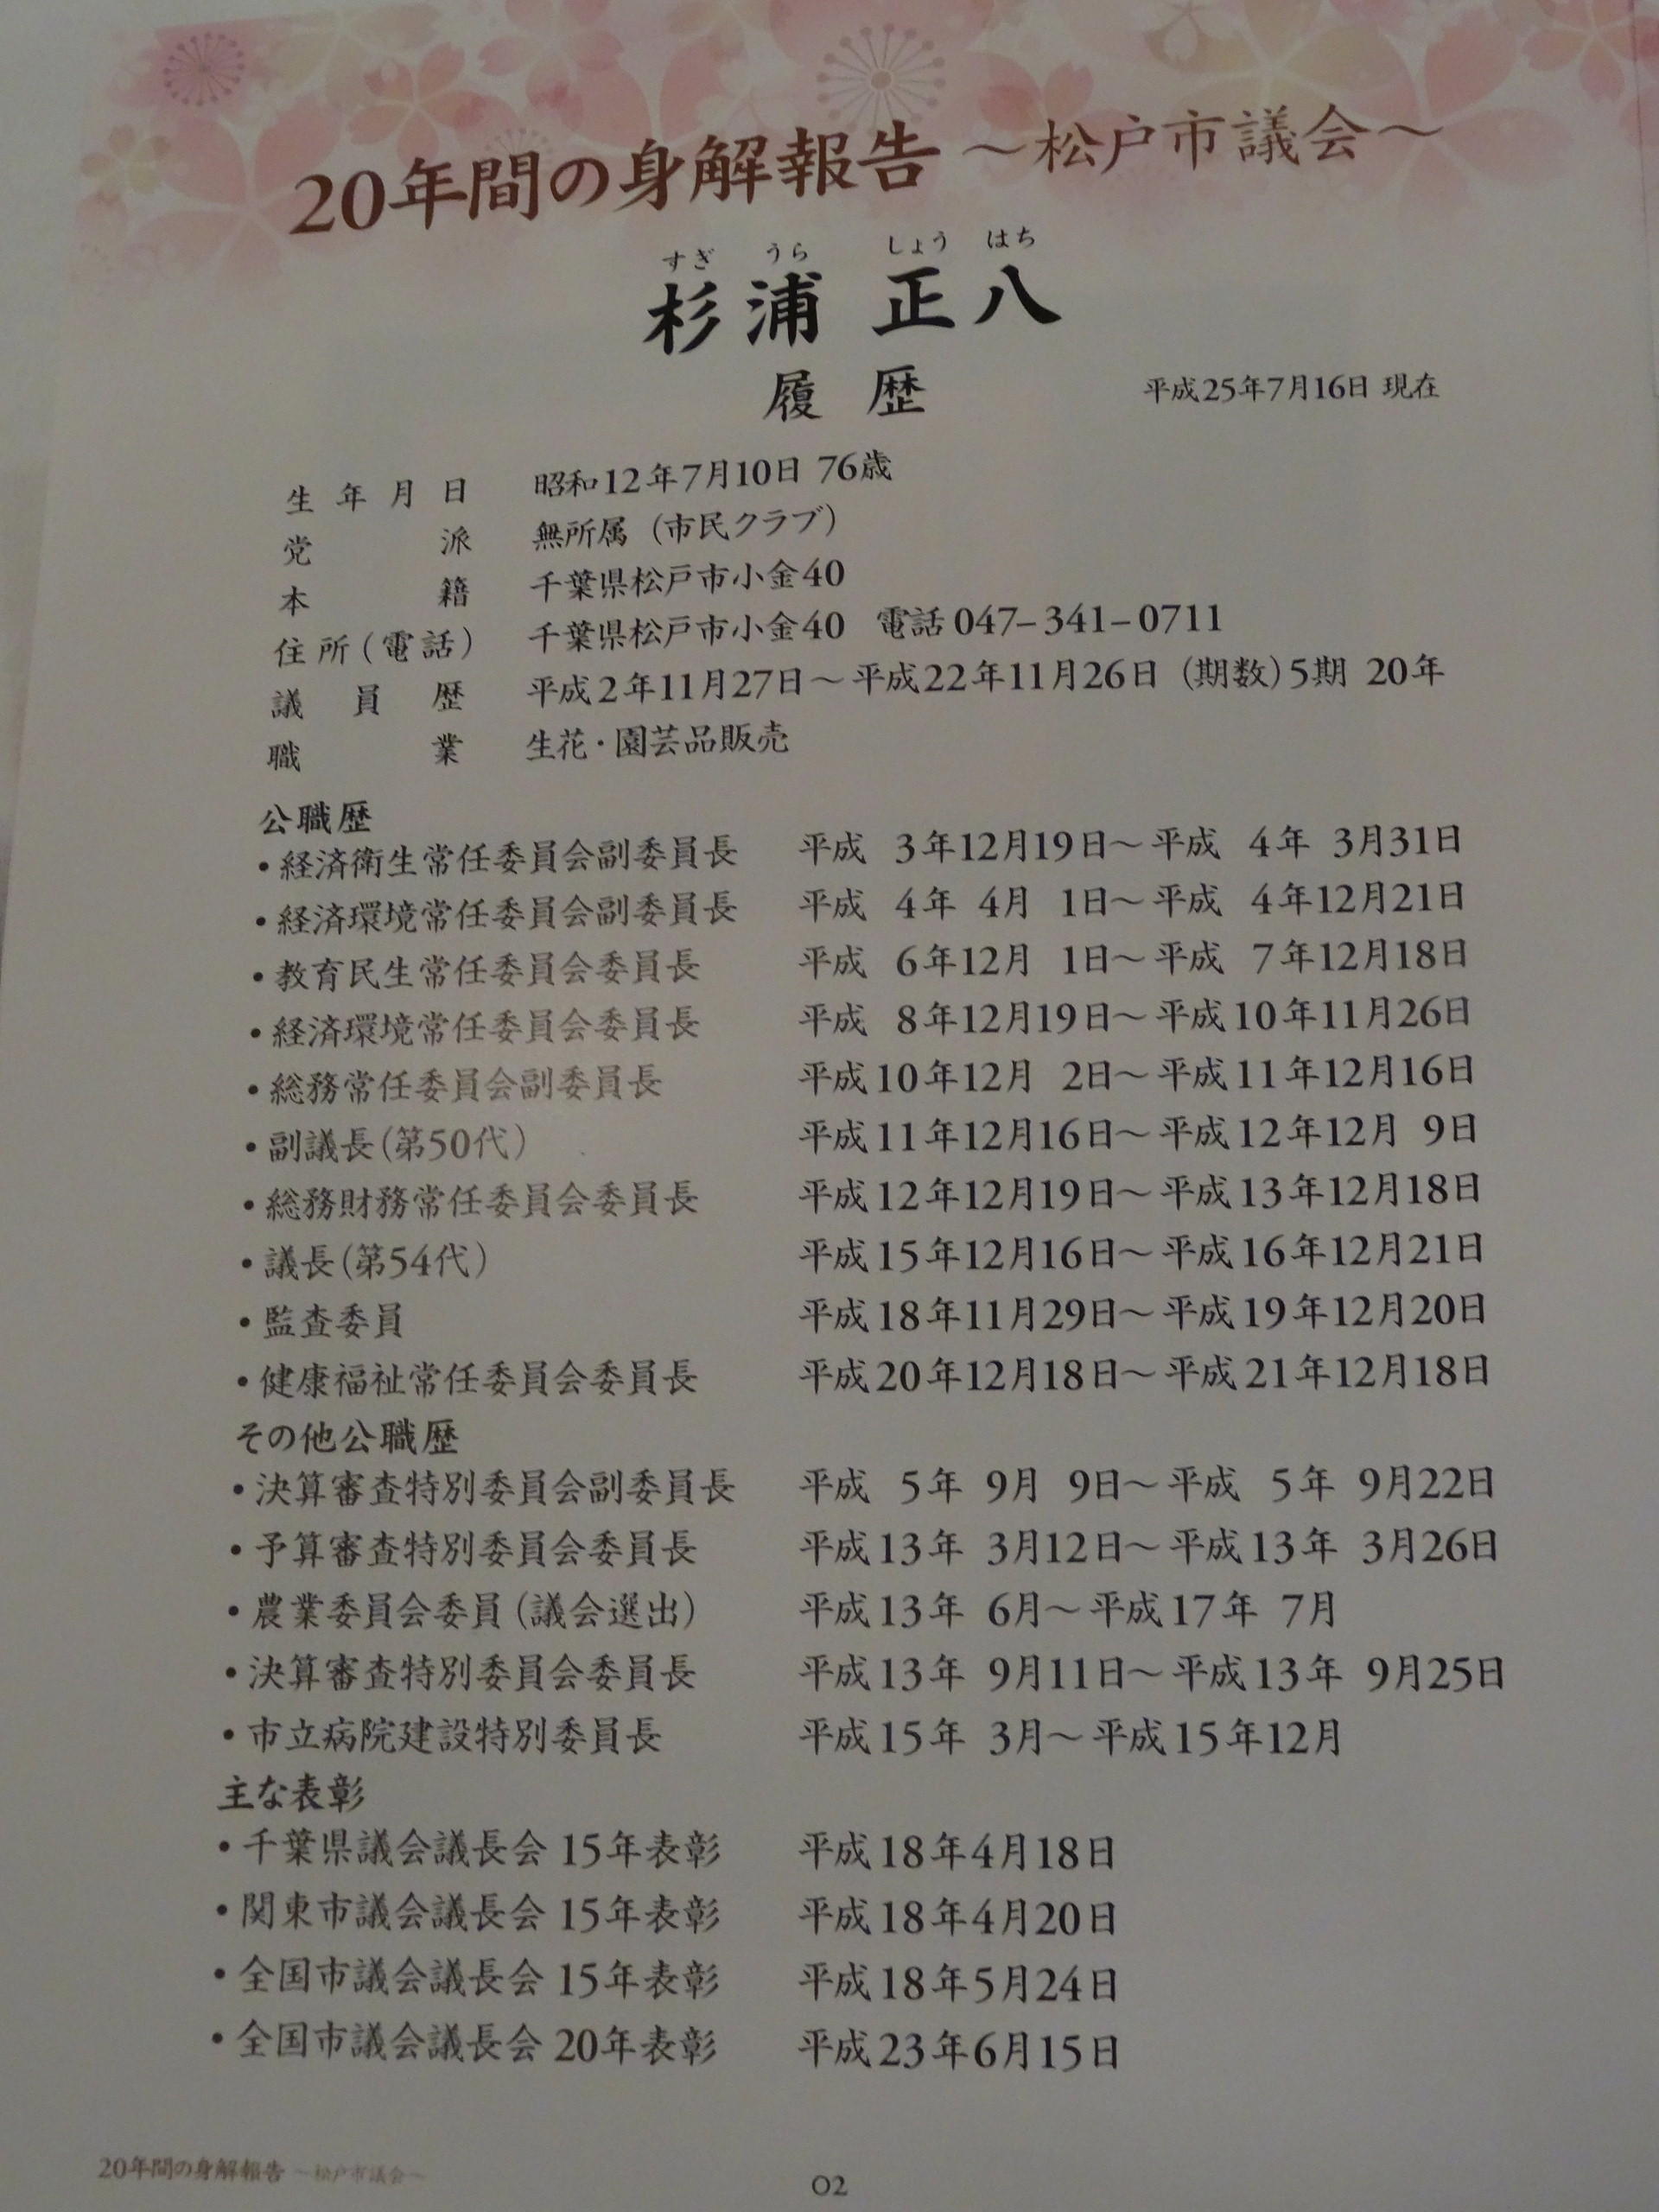 20年間の身解報告 ～松戸市議会～
すぎ うら しょう はち
杉浦 正八
履歴 平成25年7月16日 現在
生年月日 昭和12年7月10日 76歳
党派 無所属（市民クラブ）
本籍 千葉県松戸市小金40
住所(電話) 千葉県松戸市小金40 電話 047-341-0711
議員歴 平成2年11月27日～平成22年11月26日（期数)5期 20年
職業 生花・園芸品販売
公職歴
・経済衛生常任委員会副委員長 平成 3年12月19日～平成 4年 3月31日
・経済環境常任委員会副委員長 平成 4年 4月 1日～平成 4年12月21日
・教育民生常任委員会委員長 平成 6年12月 1日～平成 7年12月18日
・経済環境常任委員会委員長 平成 8年12月19日～平成10年11月26日
・総務常任委員会副委員長 平成10年12月 2日～平成11年12月16日
・副議長(第50代) 平成11年12月16日～平成12年12月 9日
・総務財務常任委員会委員長 平成12年12月19日～平成13年12月18日
・議長(第54代) 平成15年12月16日～平成16年12月21日
・監査委員 平成18年11月29日～平成19年12月20日
・健康福祉常任委員会委員長 平成20年12月18日～平成21年12月18日
その他公職歴
・決算審査特別委員会副委員長 平成 5年 9月 9日～平成 5年 9月22日
・予算審査特別委員会委員長 平成13年 3月12日～平成13年 3月26日
・農業委員会委員(議会選出) 平成13年 6月～平成17年 7月
・決算審査特別委員会委員長 平成13年 9月11日～平成13年 9月25日
・市立病院建設特別委員長 平成15年 3月～平成15年12月
主な表彰
・千葉県議会議長会 15年表彰 平成18年4月18日
・関東市議会議長会 15年表彰 平成18年4月20日
・全国市議会議長会 15年表彰 平成18年5月24日
・全国市議会議長会 20年表彰 平成23年6月15日
20年間の身解報告 ～松戸市議会～
02